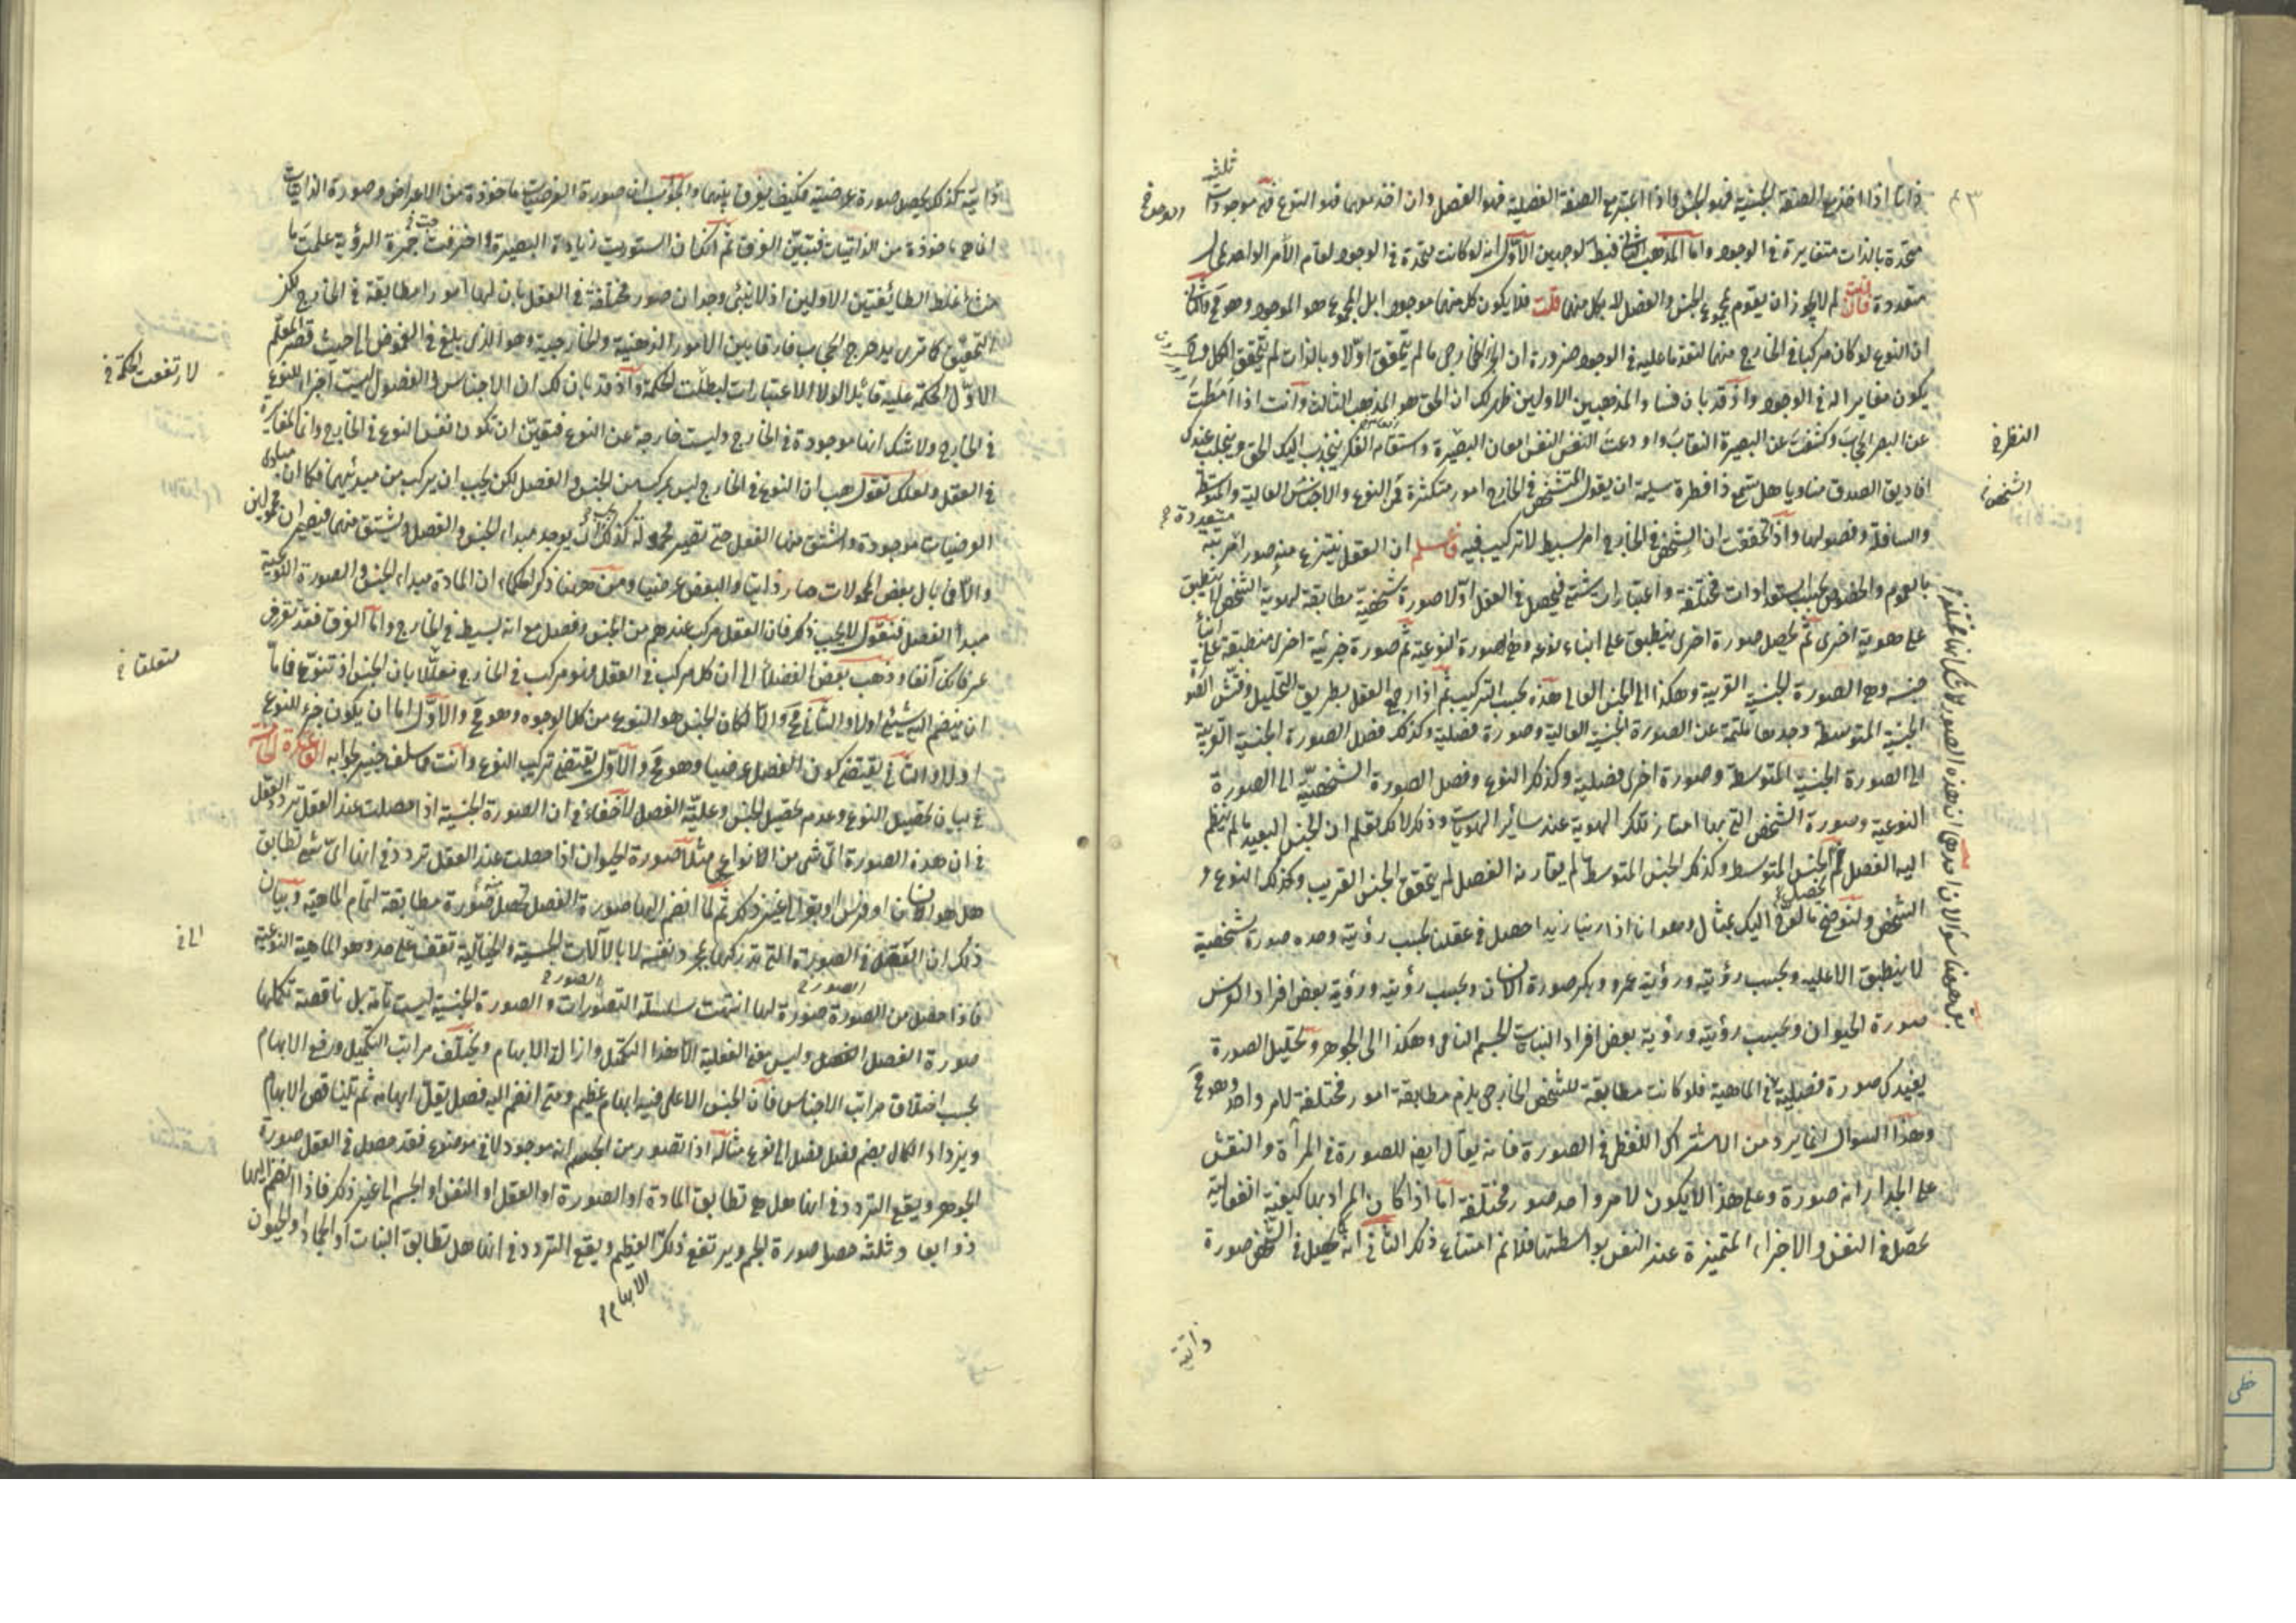 ٤٣
ذاتا اذا اخذ مع الصفة الجنسية فهو الجنس واذا اعتبر مع الصفة الفصلية فهو الفصل وان اخذ معهما فهو النوع فهى موجودات
ثلث
متحدة بالذات متغايرة فى الوجود واما المذهب الثانى فبطل لوجهين الاول انه لو كانت متحدة فى الوجود لقام الأمر الواحد بمحال
متعددة فان قلت لم لا يجوز ان يقوم بمجموع الجنس والفصل لا بكل منهما قلت فلا يكون كل منهما موجودا بل المجموع هو الموجود وهو مح والثانى
ان النوع لو كان مركبا فى الخارج منهما لتقدما عليه فى الوجود ضرورة ان الجزء الخارجى ما لم يتحقق اولا وبالذات لم يتحقق الكل
يكون مغايرا له فى الوجود واذ قد بان فساد المذهبين الاولين ظهر لك ان الحق هو المذهب الثالث وانت اذا امطت
عن البصر الحجاب وكشفت عن البصيرة النقاب واودعت النفس امعان البصيرة واستقامة الفكر ينجذب اليك الحق ويتجلى عندك
النظر
افاديق الصدق مناديا هل يسمع ذا فطرة سليمة ان يقول المتشخص فى الخارج امور متكثرة من النوع والاجناس العالية والمتوسطة
الشخص
والسافلة وفصولها واذ تحققت ان الشخص فى الخارج امر بسيط لا تركيب فيه فاعلم ان العقل ينتزع منه صورا مترتبة
متعددة
بالعموم والخصوص بحسب استعدادات مختلفة واعتبارات شتى فيحصل فى العقل اولا صورة شخصية مطابقة لهوية الشخص لا ينطبق
على هوية اخرى ثم يحصل صورة اخرى ينطبق على ابناء نوعه وهى الصورة النوعية ثم صورة جزئية اخرى منطبقة على ابناء
جنسه وهى الصورة الجنسية القريبة وهكذا الى الجنس العالى هذه بحسب التركيب ثم اذا رجع العقل بطريق التحليل وفتش الصورة
الجنسية المتوسطة وجدها ملتئمة عن الصورة الجنسية العالية وصورة فصلية وكذلك فصل الصورة الجنسية القريبة
الى الصورة الجنسية المتوسطة وصورة اخرى فصلية وكذلك النوع وفصل الصورة الشخصية الى الصورة
النوعية وصورة الشخص التى بها امتاز تلك الهوية عند سائر الهويات وذلك لانك تعلم ان الجنس البعيد ما لم ينظم
اليه الفصل لم يحصل الجنس المتوسط وكذلك الجنس المتوسط ما لم يقارنه الفصل لم يتحقق الجنس القريب وكذلك النوع و
الشخص ولنوضح ما لوح اليك بمثال وهو ان اذا راينا زيدا حصل فى عقلنا بحسب رؤيته وحده صورة شخصية
لا ينطبق الا عليه وبحسب رؤيته ورؤية عمرو وبكر صورة الانسان وبحسب رؤيته ورؤية بعض افراد الفرس
صورة الحيوان وبحسب رؤيته ورؤية بعض افراد النبات الجسم النامى وهكذا الى الجوهر وتحليل الصورة
يفيدك صورة فصلية فى الماهية فلو كانت مطابقة للشخص الخارجى يلزم مطابقة امور مختلفة لامر واحد وهو مح
وهذا السؤال انما يرد من الاشتراك اللفظى فى الصورة فانه يقال ايضا للصورة فى المرآة والنقش
على الجدار انه صورة وعلى هذا لا يكون لامر واحد صور مختلفة اما اذا كان المراد بها كيفية انفعالية
تحصل فى النفس والاجزاء المتميزة عند النفس بواسطتها فلا نم امتناع ذلك الثانى انه كما يحصل فى الشخص صورة
بقى ههنا سؤالان احدهما ان هذه الصور لا شك انها مختلفة
ذاتية
ذاتية كذلك يحصل صورة عرضية فكيف يفرق بينهما والجواب ان صورة العرضيات ماخوذة من الاعراض وصورة الذاتيات
انما هى ماخوذة من الذاتيات فتبين الفرق ثم انك ان استوريت زيادة البصيرة واخترقت حجزة الرؤية علمت ما
منشأ غلط الطائفتين الاولين اذ لا ينبئ وجدان صور مختلفة فى العقل بان لها امورا مطابقة فى الخارج لكن
التحقيق كما ترى يد خرج الحجاب فارقا بين الامور الذهنية والخارجية وهو الذى بلغ فى الغموض الى حيث قصر المعلم
الاول الحكمة عليه قائلا لولا الاعتبارات لبطلت الحكمة واذ قد بان لك ان الاجناس والفصول ليست اجزاء للنوع
لارتفعت الحكمة
فى الخارج ولا شك انها موجودة فى الخارج وليست خارجة عن النوع فتعين ان تكون نفس النوع فى الخارج وانما المغايرة
فى العقل ولعلك تقول هب ان النوع فى الخارج ليس يتركب من الجنس والفصل لكن يجب ان يتركب من مبدئيهما فكما ان مبادى
العرضيات موجودة واشتق منها الفعل حتى تصير محمولة كذلك يوجد مبداء الجنس والفصل ويشتق منهما فيصير ان محمولين
والا فما بال بعض المحمولات صار ذاتيا والبعض عرضيا ومن ههنا ذكر الحكماء ان المادة مبداء الجنس والصورة النوعية
مبدأ الفصل فنقول لا يجب ذلك فان العقل مركب عندهم من الجنس وفصل مع انه بسيط فى الخارج واما الفرق فقد تقرر فى
عرفانك آنفا وذهب بعض الفضلاء الى ان كل مركب فى العقل فهو مركب فى الخارج معللا بان الجنس اذ تنوع فاما
متعلقا
ان ينضم اليه شئ اولا والثانى مح والا لكان الجنس هو النوع من كل الوجوه وهو مح والاول اما ان يكون جزء للنوع
اولا والثانى يقتضى كون الفصل عرضيا وهو مح والاول يقتضى تركيب النوع وانت مما سلف خبير بجوابه الفائدة الخامسة
فى بيان تحصيل النوع وعدم تحصيل الجنس وعلية الفصل لا خفاء فى ان الصورة الجنسية اذا حصلت عند العقل تردد العقل
فى ان هذه الصورة اى شئ من الانواع هى مثلا صورة الحيوان اذا حصلت عند العقل تردد فى انها اى شئ تطابق
هل هو انسان او فرس او بقر الى غير ذلك ثم لما انضم اليها صورة الفصل تحصل صورة مطابقة لتمام الماهية وبيان
ذلك ان العقل فى الصورة التى يدركها بمجرد نفسه لا بالآلات الحسية والخيالية تقف على حد وهو الماهية النوعية
الى
فاذا حصل من الصورة صورة لها انتهت سلسلة التصورات والصورة الجنسية ليست تامة بل ناقصة تكملها
صورة الفصل وليس معنى العلية الا هذا التكمل وازالة الابهام ويختلف مراتب التكميل ورفع الابهام
بحسب اختلاف مراتب الاجناس فان الجنس الاعلى فيه ابهام عظيم ومتى انضم اليه فصل يقل ابهامه ثم يتناقص الابهام
ويزداد الكمال بضم فصل فصل الى النوع مثاله اذا تصور من الجسم انه موجود لا فى موضوع فقد حصل فى العقل صورة
الجوهر ويقع التردد فى انها هل هى تطابق المادة او الصورة او العقل او النفس او الجسم الى غير ذلك فاذا انضم اليها
ذو ابعاد ثلثة حصل صورة الجسم ويرتفع ذلك العظيم ويقع التردد فى انها هل تطابق النبات او الجماد او الحيوان
الابهام
خطى